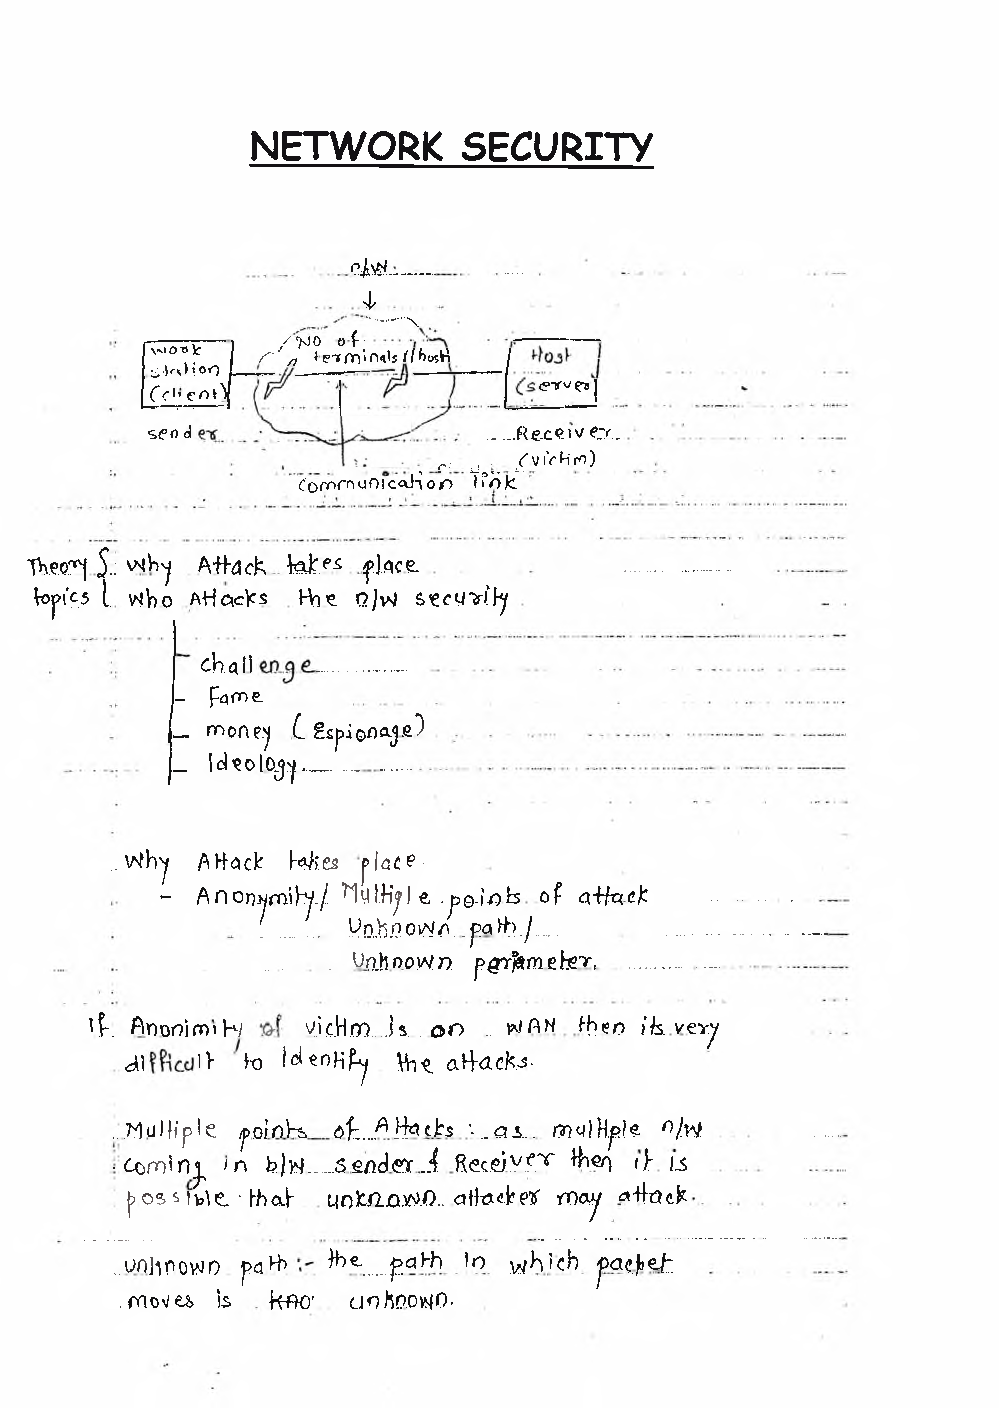 NETWORK SECURITY
n/w.
No of
terminals/host
work
station
(client)
Host
(server)
sender
Receiver
(victim)
communication link
Theory topics
why Attack takes place
who Attacks the n/w security
challenge
Fame
money (Espionage)
Ideology.
why Attack takes place
- Anonymity/ Multiple points of attack
Unknown path/
Unknown parameter.
If Anonimity of victim is on WAN then its very
difficult to Identify the attacks.
Multiple points of Attacks : as multiple n/w
coming in b/w sender & Receiver then it is
possible that unknown attacker may attack.
unknown path :- the path in which packet
moves is kno unknown.